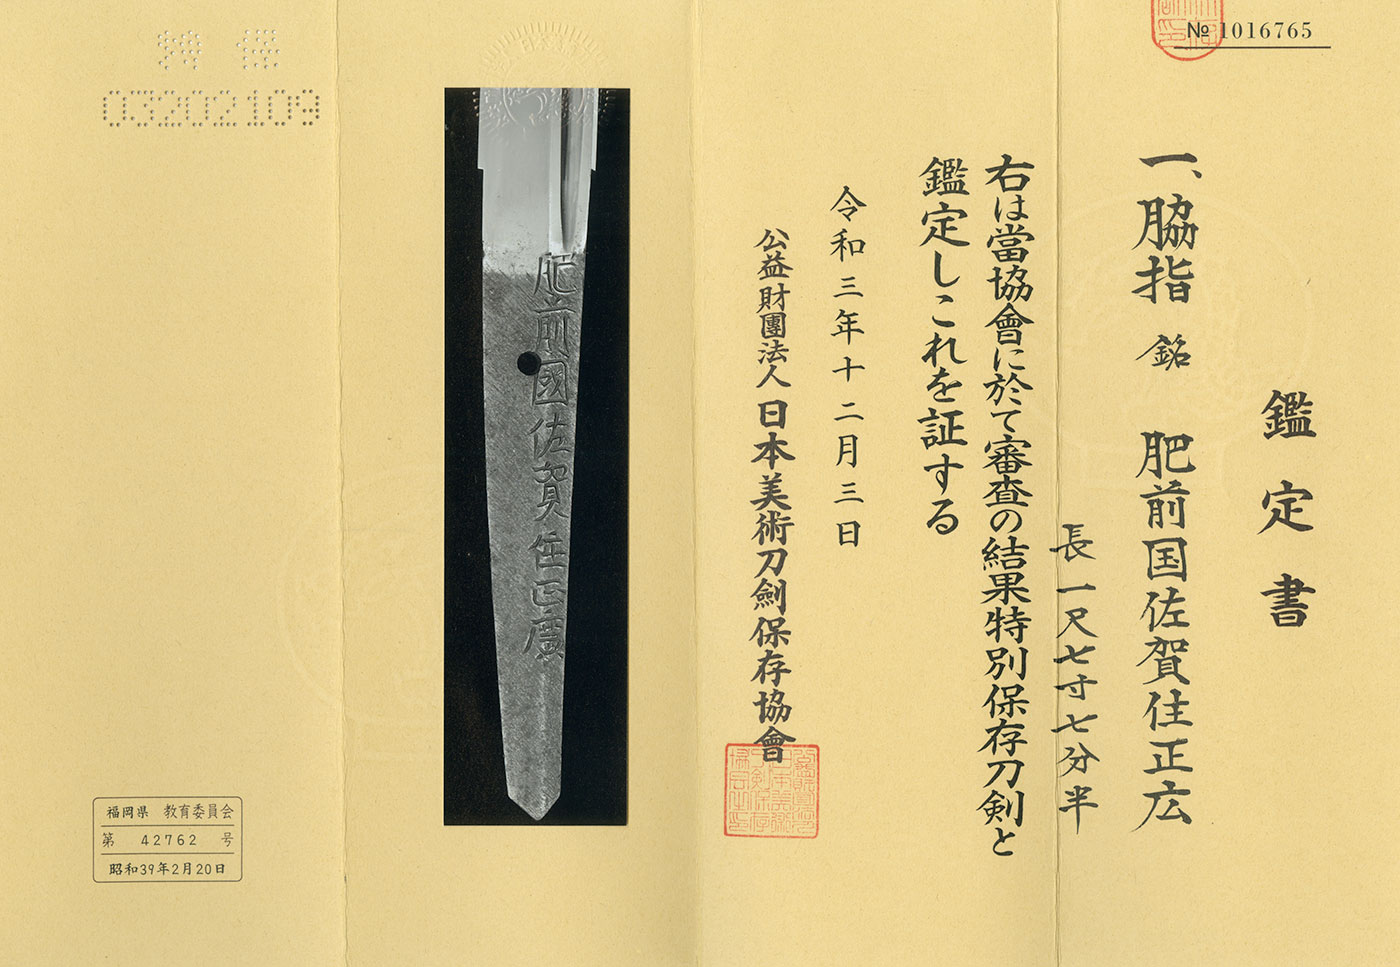 № 1016765
鑑定書
一、脇指 銘 肥前国佐賀住正広
長一尺七寸七分半
右は當協會に於て審査の結果特別保存刀剣と
鑑定しこれを証する
令和三年十二月三日
公益財團法人 日本美術刀劍保存協會
肥前國佐賀住正廣
特保
03202109
福岡県 教育委員会
第 42762 号
昭和39年2月20日